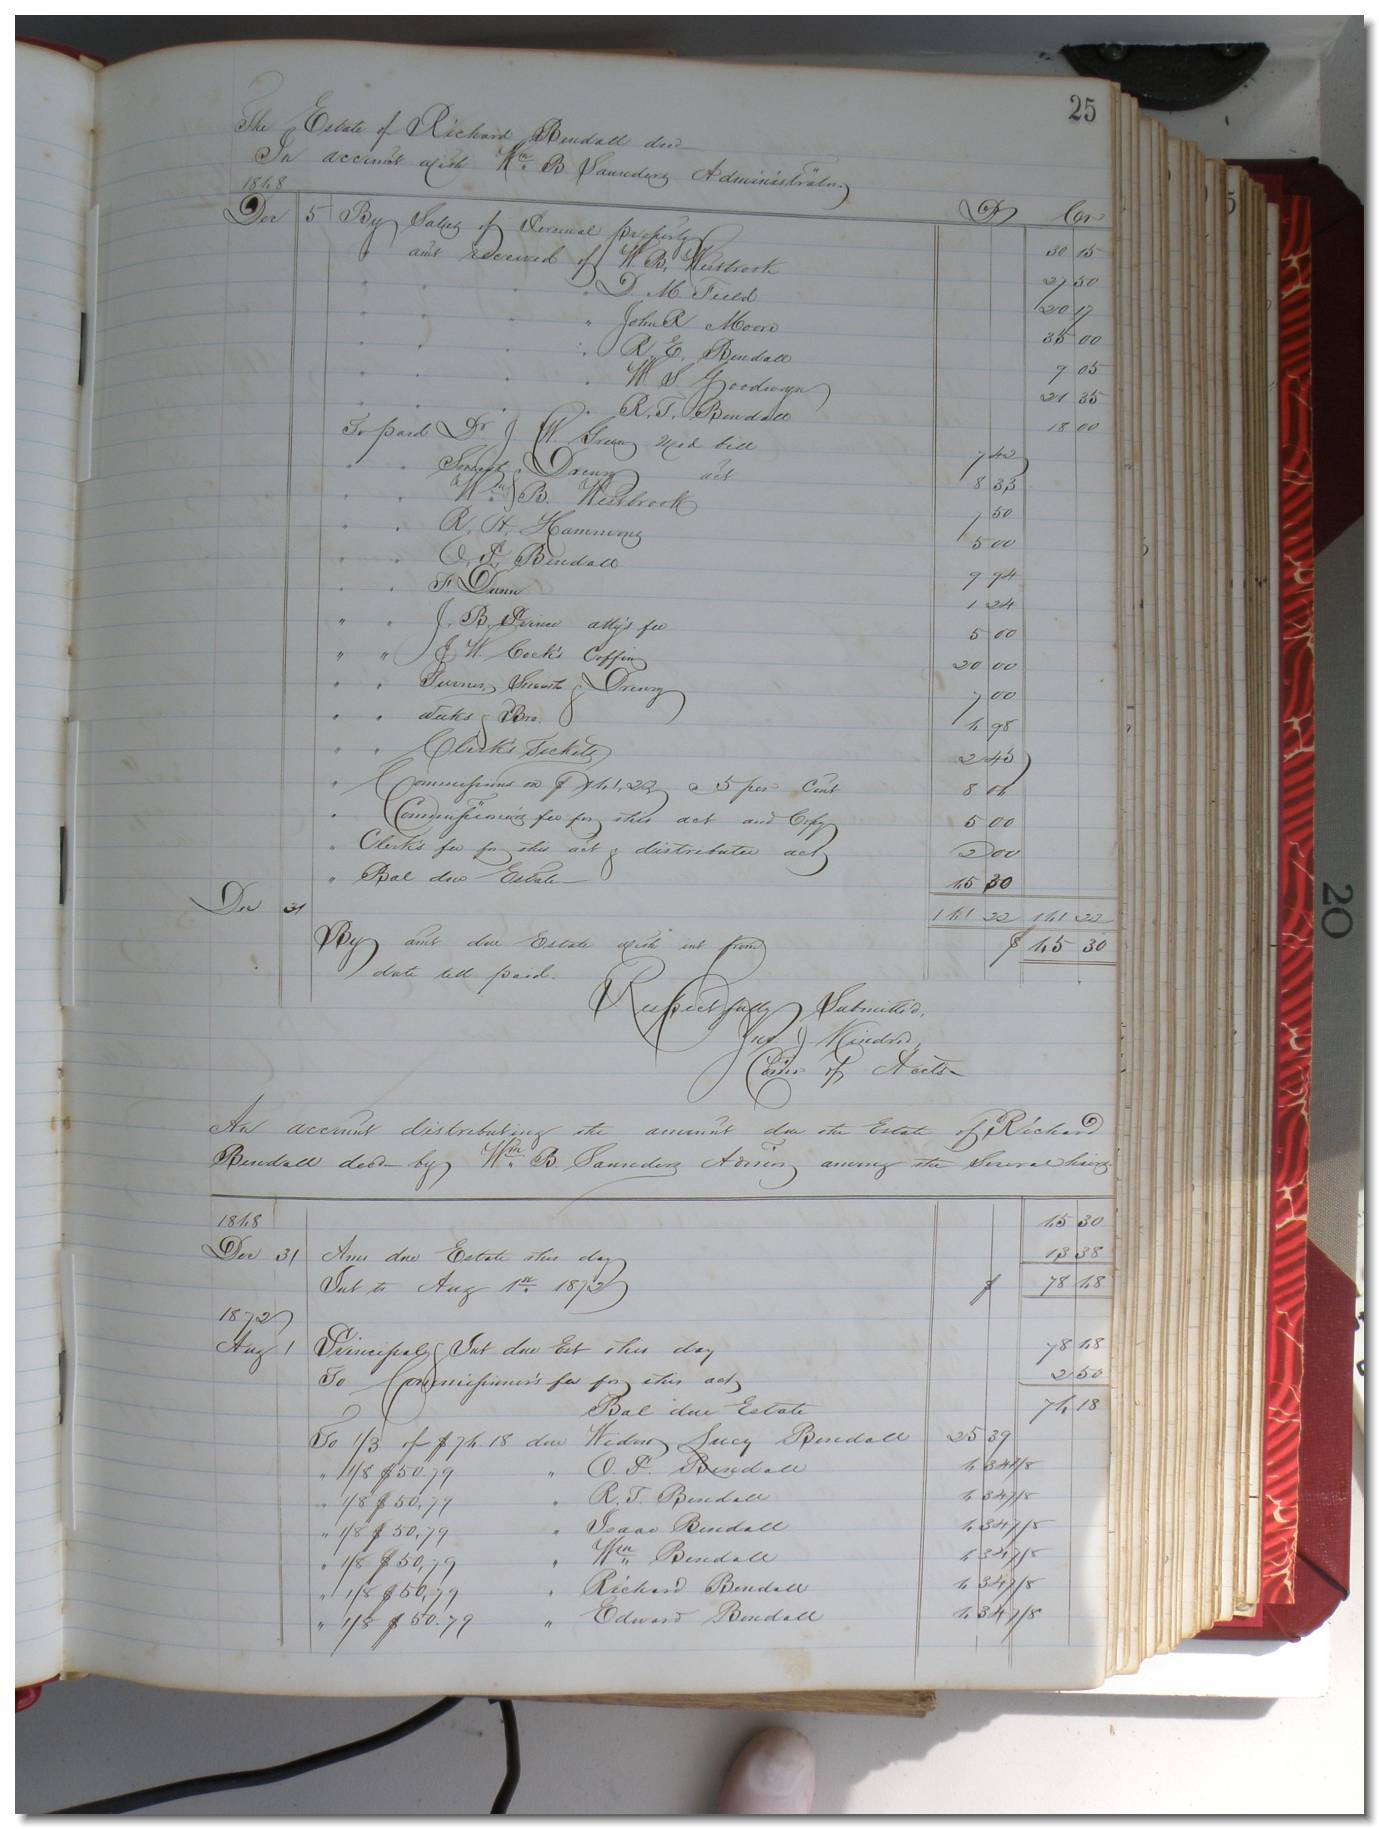 25
The Estate of Richard Bendall decd
In account with Wm. B Saunders Administrator
1868 Dr Cr
Dec 5 By Sales of Personal property 30 15
" amt received of W. B. Westbrook 27 50
" " " " D. M Field 20 17
" " " " John R Moore 35 00
" " " " R. E. Bendall 9 05
" " " " W S Goodwyn 21 35
" " " " R. T. Bendall 18 00
To paid Dr J W. Green Med bill 7 42
" " Smart & Drewry act 8 33
" " Wm. B. Westbrook 7 50
" " R. H. Hammons 5 00
" " O. P. Bendall 9 94
" " T. Dunn 1 24
" " J. B. Prince atty's fee 5 00
" " J W. Cook's Coffin 20 00
" " Turner, Smart & Drewry 7 00
" " Weeks & Bro. 6 98
" " Clerk's Tickets 2 45
" Commissions on $161,22 @ 5 per Cent 8 06
" Commissioner's fee for this act and Copy 5 00
" Clerk's fee for this act & distributee act 2 00
" Bal due Estate 65 30
161 22 161 22
Dec 31 By amt due Estate with int from $65 30
date till paid.
Respectfully Submitted,
Jno. J Kindred,
Comr of Accts
An account distributing the amount due the Estate of Richard
Bendall decd by Wm. B Saunders Admor among the Several heirs
1868 65 30
Dec 31 Amt due Estate this day 13 38
Int to Aug 1st. 1872 $ 78 68
1872
Aug 1 Principal & Int due Est this day 78 68
To Commissioner's fee for this act 2 50
Bal due Estate 76 18
To 1/3 of $76 18 due Widow Lucy Bendall 25 39
" 1/8 $50.79 " O. P. Bendall 6 34 7/8
" 1/8 $50,79 " R. T. Bendall 6 34 7/8
" 1/8 $50,79 " Isaac Bendall 6 34 7/8
" 1/8 $50,79 " Wm Bendall 6 34 7/8
" 1/8 $50,79 " Richard Bendall 6 34 7/8
" 1/8 $50.79 " Edward Bendall 6 34 7/8
5
20